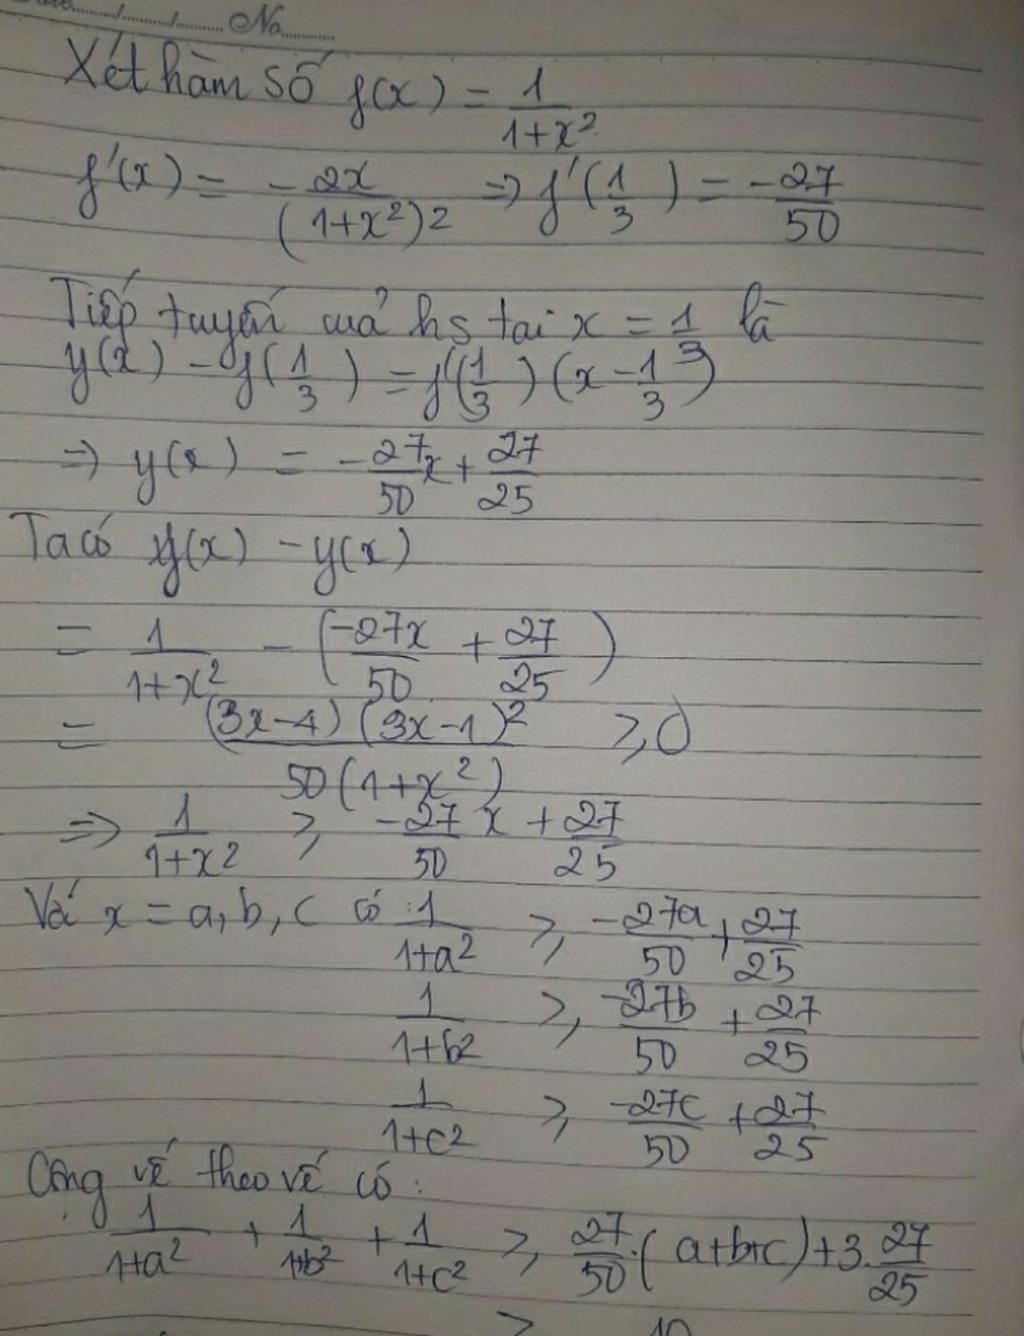 No
Xét hàm số f(x) = 1/(1+x²)
f'(x) = -2x/(1+x²)² ⇒ f'(1/3) = -27/50
Tiếp tuyến của hs tại x = 1/3 là
y(x) - f(1/3) = f'(1/3)(x - 1/3)
⇒ y(x) = -27/50 x + 27/25
Ta có f(x) - y(x)
= 1/(1+x²) - (-27x/50 + 27/25)
= (3x-4)(3x-1)²/50(1+x²) ≥ 0
⇒ 1/(1+x²) ≥ -27/50 x + 27/25
Với x = a, b, c có : 1/(1+a²) ≥ -27a/50 + 27/25
1/(1+b²) ≥ -27b/50 + 27/25
1/(1+c²) ≥ -27c/50 + 27/25
Cộng vế theo vế có :
1/(1+a²) + 1/(1+b²) + 1/(1+c²) ≥ 27/50 · (a+b+c) + 3 · 27/25